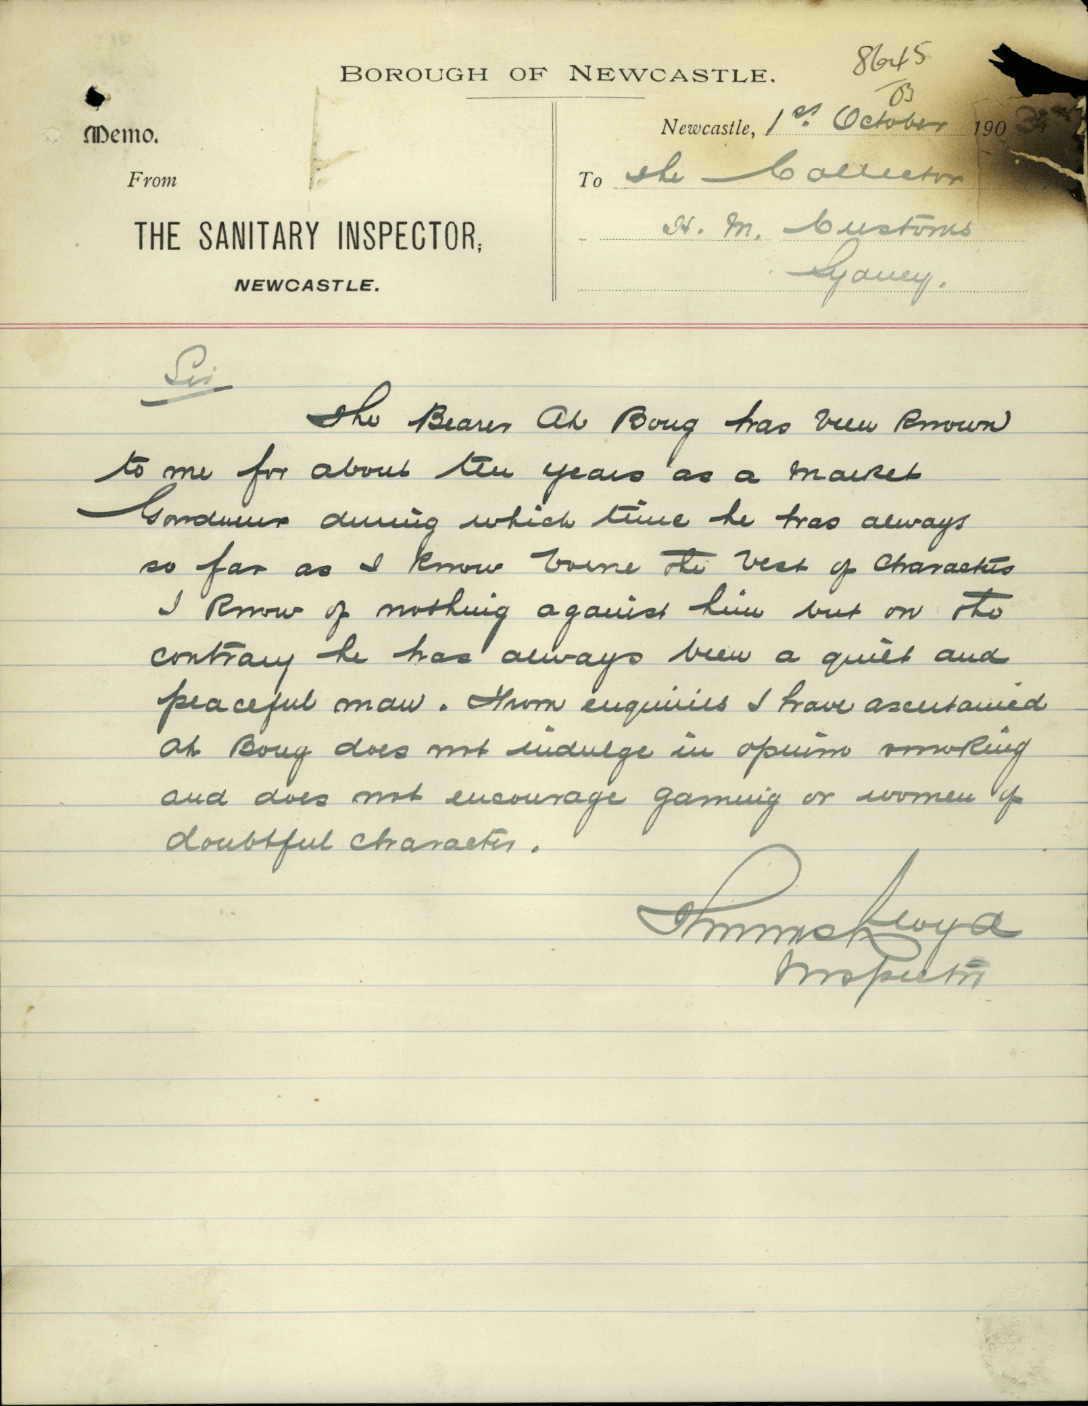 BOROUGH OF NEWCASTLE.
8645
03
Memo.
Newcastle, 1st October 1903
From
To The Collector
THE SANITARY INSPECTOR,
H. M. Customs
NEWCASTLE.
Sydney.
Sir
The Bearer Ah Boug has been known
to me for about ten years as a Market
Gardener during which time he has always
so far as I know borne the best of Character
I know of nothing against him but on the
contrary he has always been a quiet and
peaceful man. From enquiries I have ascertained
Ah Boug does not indulge in opium smoking
and does not encourage gaming or women of
doubtful character.
Lloyd
Inspector